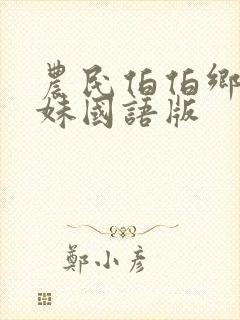 農民伯伯鄉
妹國語版
鄭小彥